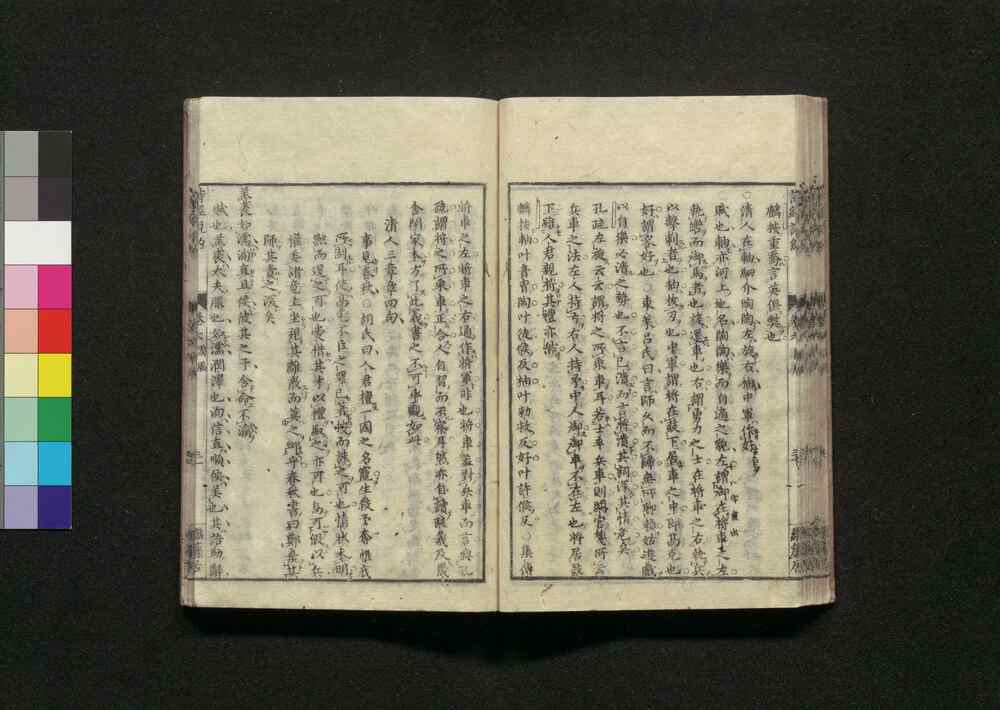 麟按重喬言英俱弊也
○清人在軸駟介陶陶左旋右抽中軍作好
賦也軸亦河上地名陶陶樂而自適之貌左謂御在將車之左
執轡而御馬者也旋還車也右謂勇力之士在將車之右執兵
以擊刺者也抽拔刃也中軍謂將在鼓下居車之中即高克也
好謂容好也○東萊呂氏曰言師久而不歸無所聊賴姑遊戲
以自樂必潰之勢也不言已潰而言將潰其詞深其情危矣
孔疏左旋云云謂將之所乘車耳若士卒兵車則
兵車之法左人持弓右人持矛中人御御車不在左也將居鼓
下雖人君親將其禮亦然
麟按軸叶音冑陶叶徒候反抽叶勑救反好叶許候反○集傳
將車之左將車之右通作將軍非也將車盖對兵車而言與孔
疏謂將之所乘車正合人自習而不察耳然亦自讀疏義及嚴
宋本方了此義書之不可觀如此
清人三章章四句
事見春秋○胡氏曰人君擅一國之名寵生殺予奪惟我
所制耳使高克不臣之罪已著按而誅之可也情狀未明
黜而退之可也愛惜其才以禮馭之亦可也烏可假以兵
權委諸竟上坐視其離散而莫之卹乎春秋書曰鄭棄其
師其責之深矣
羔裘如濡洵直且侯彼其之子舍命不渝
賦也羔裘大夫服也如濡潤澤也洵信直順侯美也其語助辭